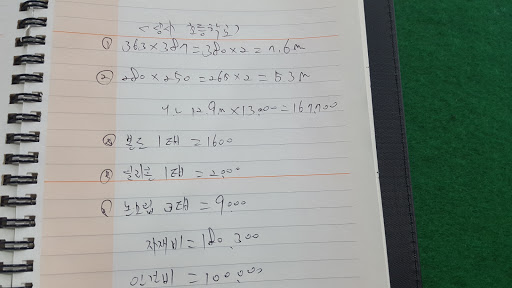 ① 363×387=380×2=7.6m
② 280×250=265×2=5.3m
12.9m×13.000=167.700
③ 본드 1개=1600
④ 실리콘 1개=2.000
⑤ 3개=9.000
자재비=180.300
인건비=100.000